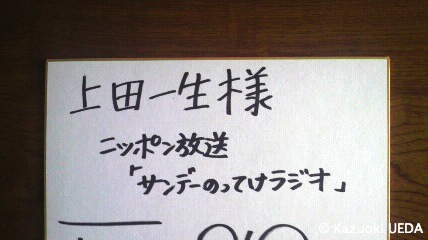 上田一生様
ニッポン放送
「サンデーのってけラジオ」
© Kazuoki UEDA